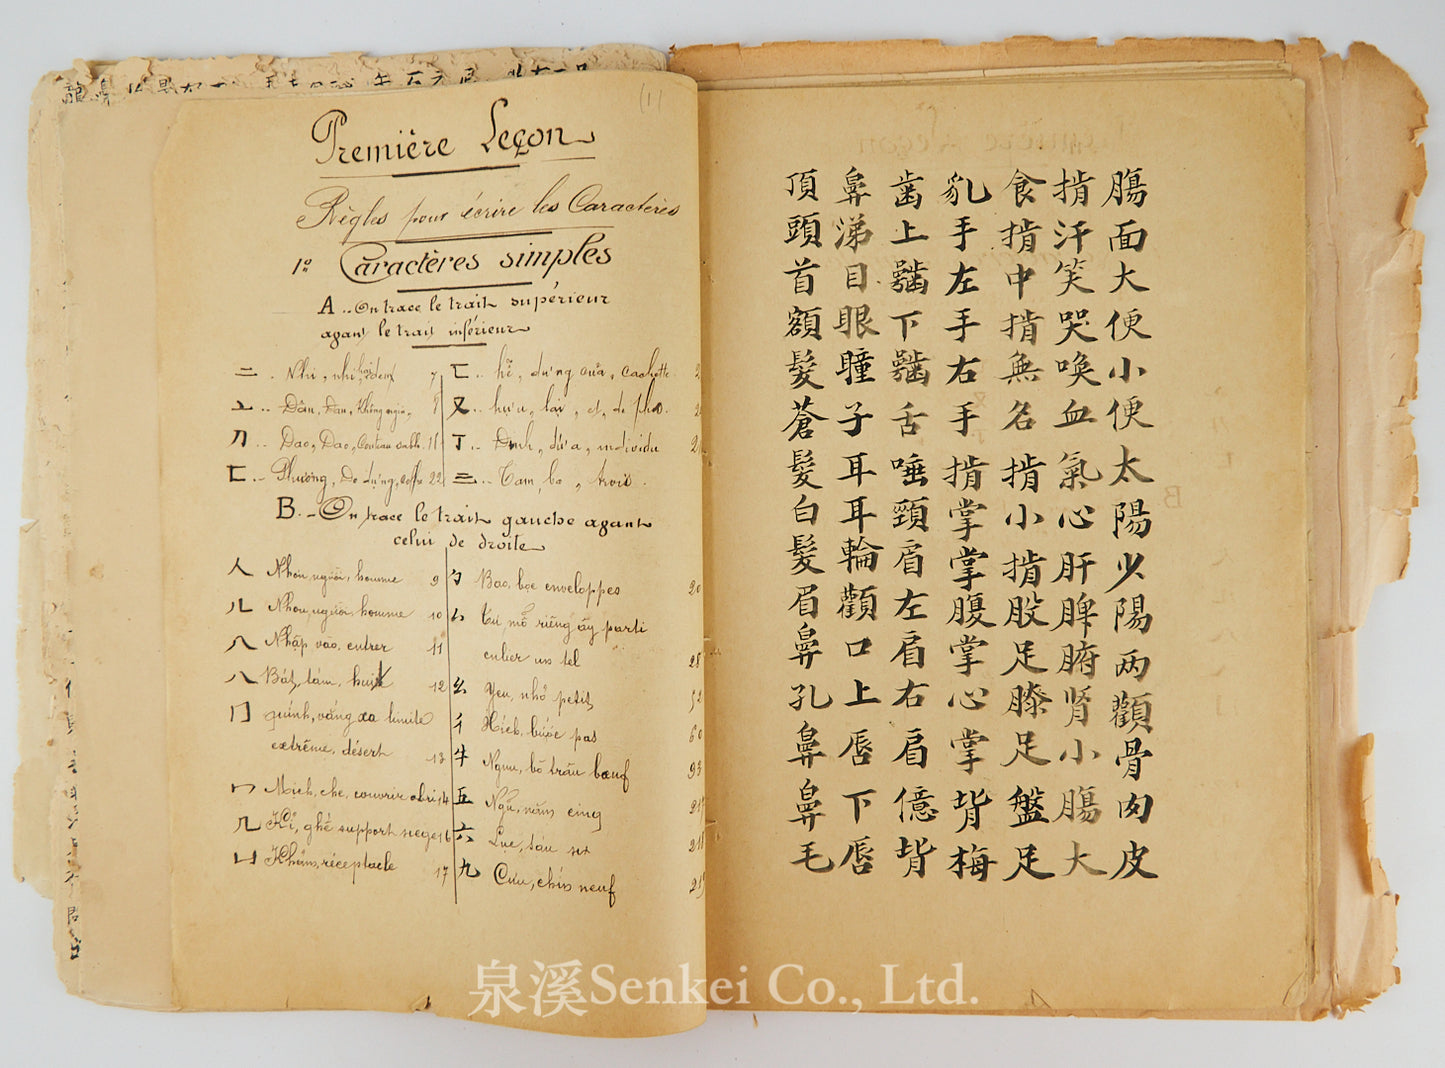 (1)
Première Leçon
Règles pour écrire les Caractères
1º Caractères simples
A .. On trace le trait supérieur
avant le trait inférieur
二 . Nhi, nhì, hai, deux 7
亠 .. Đầu, Đầu, không nghĩa, 8
刀 .. Dao, Dao, Couteau sabl. 11
匚 .. Phương, Đồ đựng, coffre 22
匸 .. hễ, đứng cửa, cachette
又 .. hựu, lại, et, de plus.
丁 .. Đinh, đứa, individu
三 .. Tam, ba, trois.
B. - On trace le trait gauche avant
celui de droite
人 Nhơn, người, homme 9
儿 Nhơn, người, homme 10
入 Nhập, vào, entrer 11
八 Bát, tám, huit 12
冂 quinh, vắng xa limite
extrême, désert 13
冖 Mich, che, couvrir abri 14
几 Kỉ, ghế support siège 16
凵 Khảm, réceptacle 17
勹 Bao, bọc enveloppes 20
厶 Tư, mỗ riêng ấy parti
culier un tel 28
幺 Yêu, nhỏ petit, 52
彳 Xích, bước pas 60
牛 Ngưu, bò trâu bœuf 93
五 Ngũ, năm cinq
六 Lục, sáu six
九 Cưu, chín neuf
頂頭首額髮蒼髮白髮眉鼻孔鼻鼻毛
鼻涕目眼瞳子耳耳輪顴口上唇下唇
齒上齶下齶舌唾頸肩左肩右肩億背
乳手左手右手掯掌掌腹掌心掌背梅
食掯中掯無名掯小掯股足膝足盤足
掯汗笑哭喚血氣心肝脾腑肾小腸大
腸面大便小便太陽少陽两顴骨肉皮
泉溪Senkei Co., Ltd.